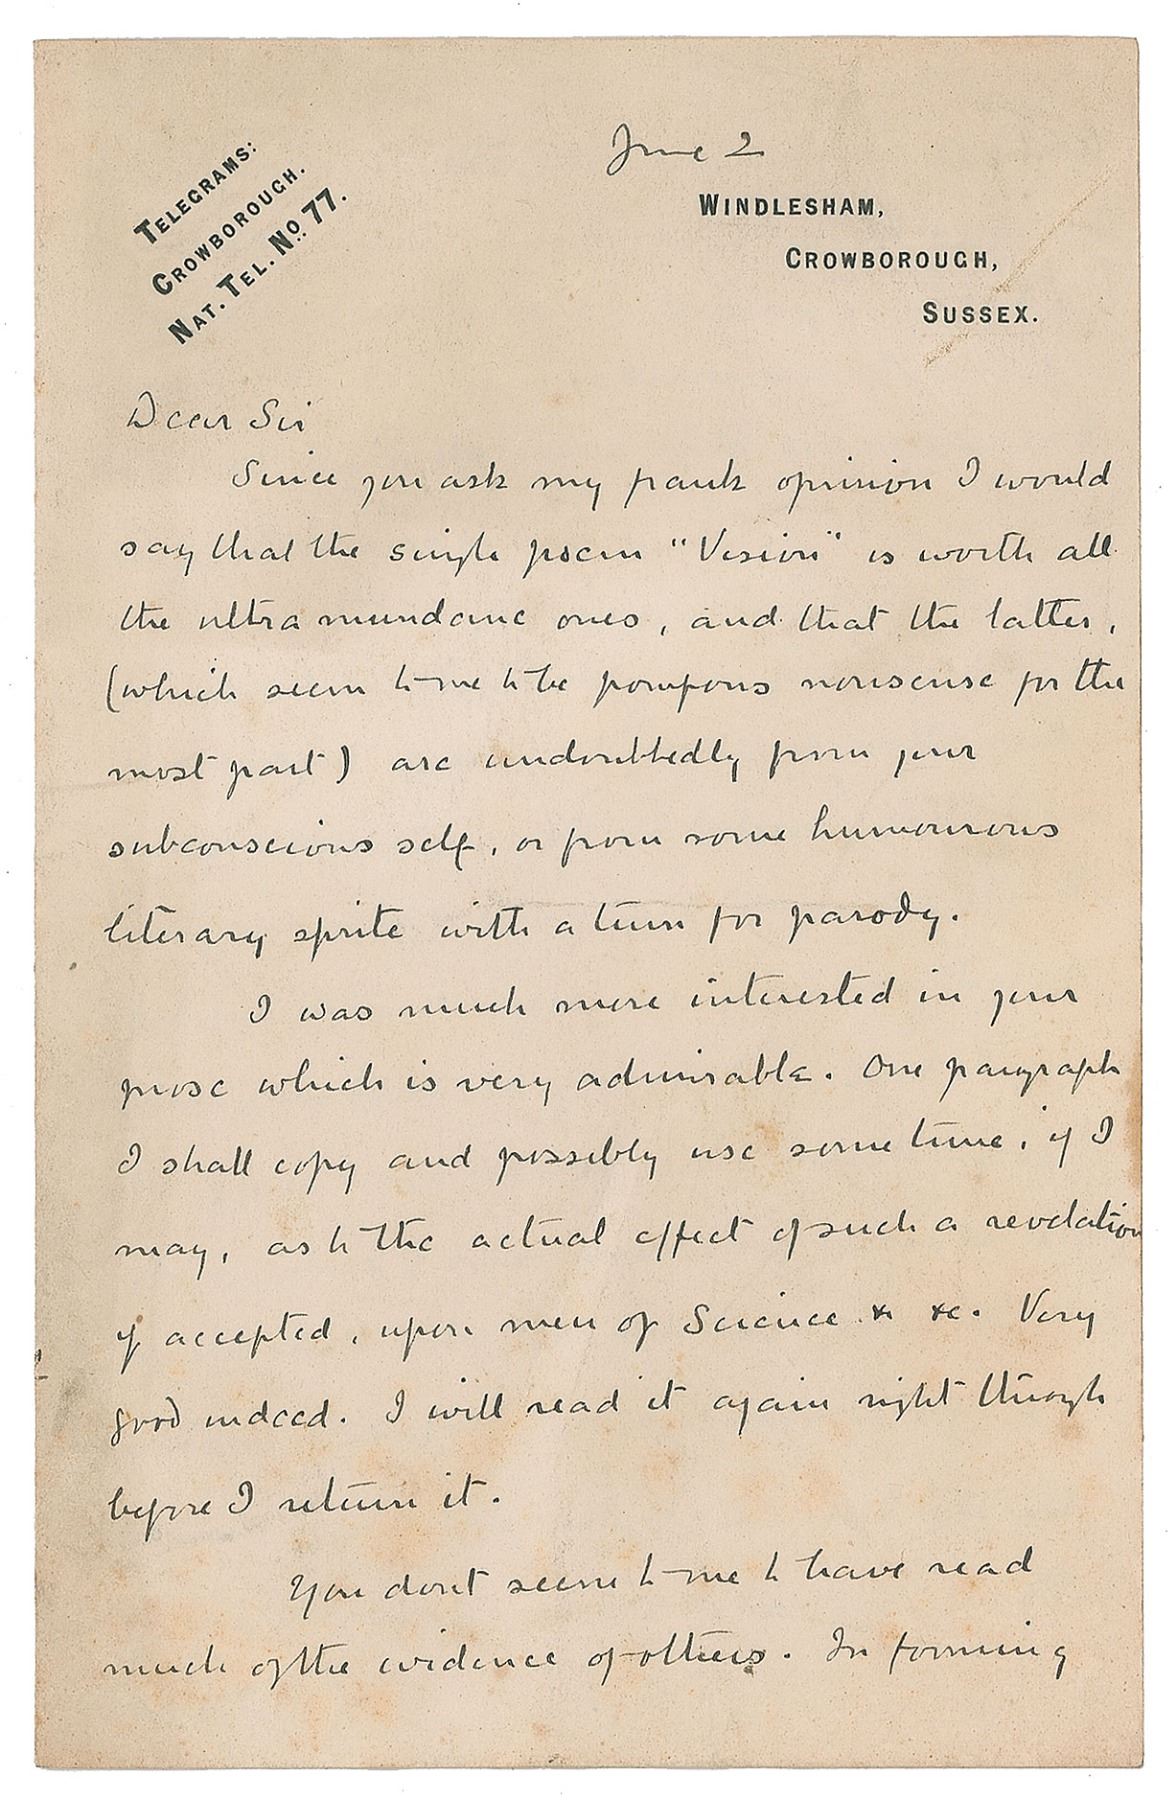 TELEGRAMS:
CROWBOROUGH.
NAT. TEL. No. 77.
June 2
WINDLESHAM,
CROWBOROUGH,
SUSSEX.
Dear Sir
Since you ask my frank opinion I would
say that the single poem "Vision" is worth all
the ultra mundane ones, and that the latter,
(which seem to me to be pompous nonsense for the
most part) are undoubtedly from your
subconscious self, or from some humourous
literary sprite with a turn for parody.
I was much more interested in your
prose which is very admirable. One paragraph
I shall copy and possibly use some time, if I
may, as to the actual effect of such a revelation
if accepted, upon men of Science &c &c. Very
good indeed. I will read it again right through
before I return it.
You dont seem to me to have read
much of the evidence of others. In forming